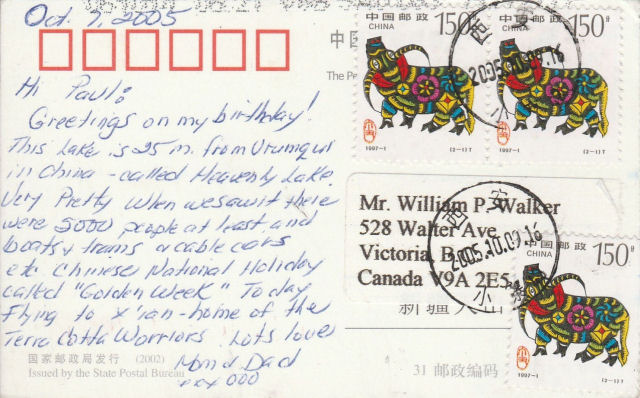 Oct 7, 2005
Hi Paul:
Greetings on my birthday!
This Lake is 25 m. from Urumqui
in China - called Heavenly Lake.
Very Pretty When we saw it there
were 5000 people at least and
boats, trams, cable cars
etc. Chinese National Holiday
called "Golden Week" Today
flying to X'ian - home of the
Terra Cotta Warriors. Lots love
Mom & Dad
xxx 000
国家邮政局发行 (2002)
Issued by the State Postal Bureau
中国
The Pe
中国邮政 150分
CHINA
1997-1 (2-1)T
中国邮政 150分
CHINA
1997-1 (2-1)T
西安
2005.10.09.16
小寨
Mr. William P. Walker
528 Walter Ave
Victoria, B.C.
Canada V9A 2E5
西安
2005.10.09.16
小寨
新疆天山
31 邮政编码
中国邮政 150分
CHINA
1997-1 (2-1)T